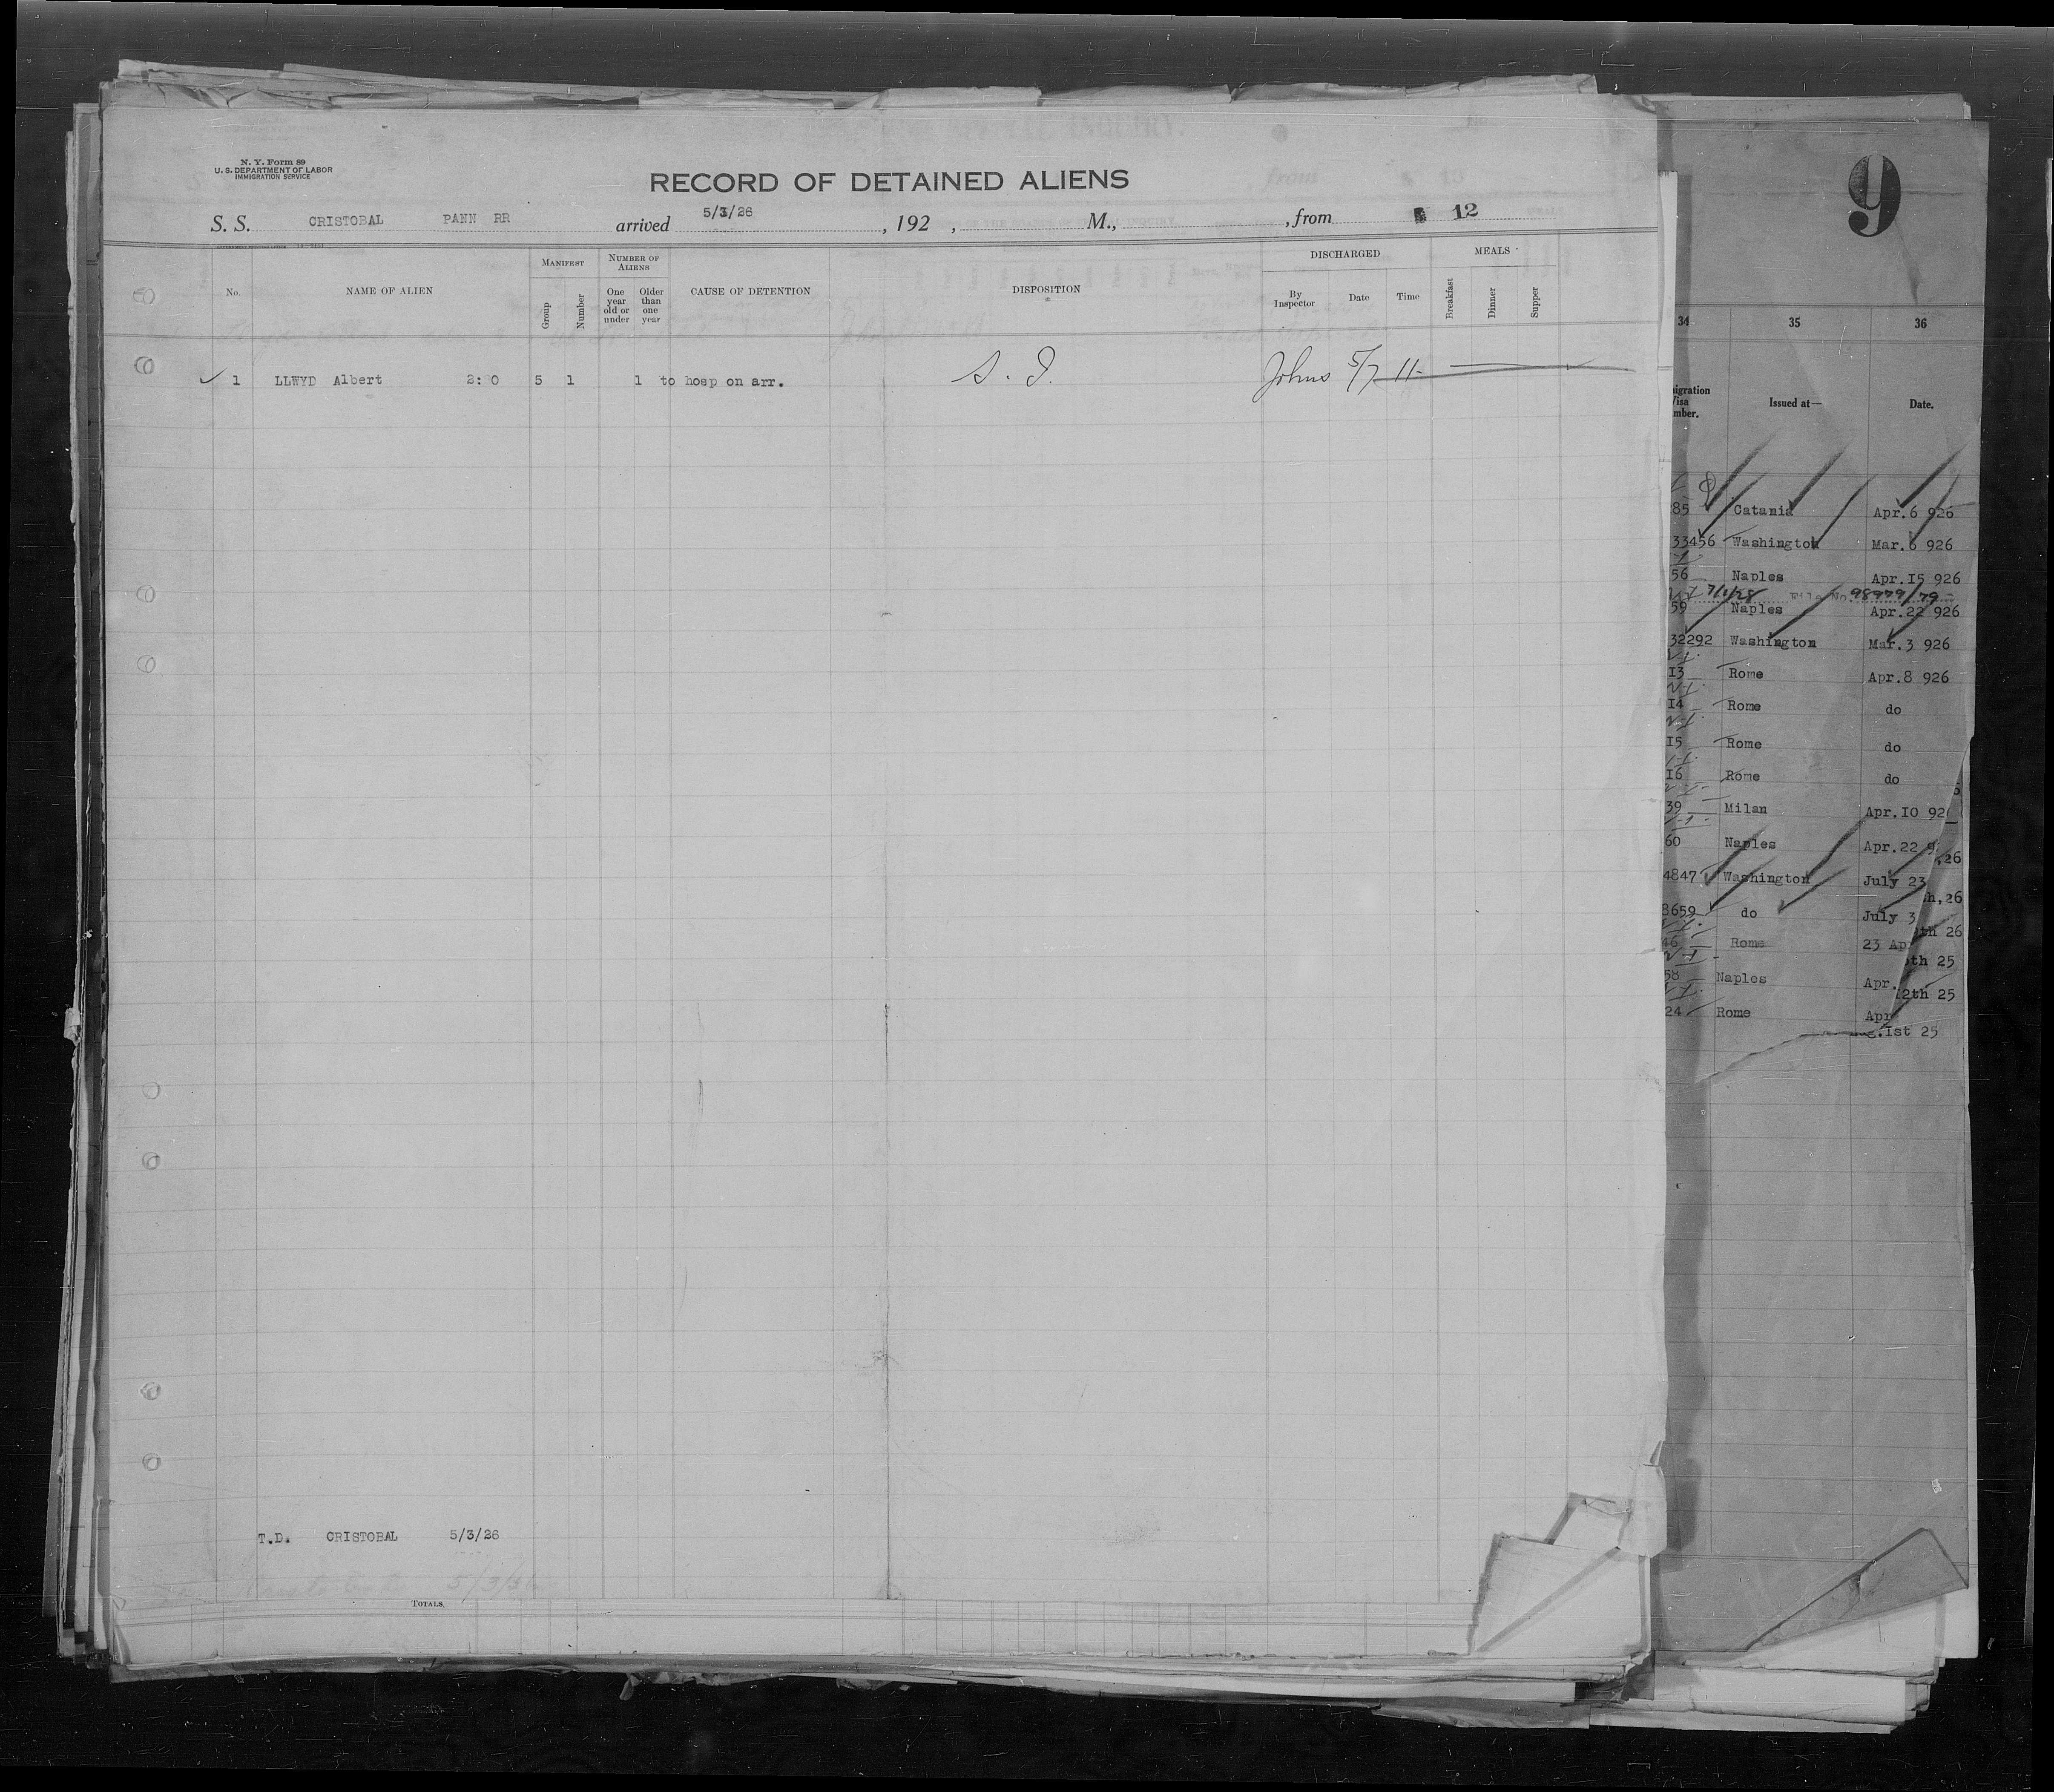 N. Y. Form 89
U. S. DEPARTMENT OF LABOR
IMMIGRATION SERVICE
RECORD OF DETAINED ALIENS
S. S. CRISTOBAL PANN RR arrived 5/3/26, 192 , M., , from 12
No.
NAME OF ALIEN
MANIFEST
Group
Number
NUMBER OF ALIENS
One year old or under
Older than one year
CAUSE OF DETENTION
DISPOSITION
DISCHARGED
By Inspector
Date
Time
MEALS
Breakfast
Dinner
Supper
1 LLWYD Albert 5 1 1 to hosp on arr. S. I. Johns 5/7 11-
T.D. CRISTOBAL 5/3/26
TOTALS,
9
34 35 36
Issued at— Date.
85 Catania Apr.6 926
33456 Washington Mar.6 926
56 Naples Apr.15 926
7/1/28 File No. 98979/79
59 Naples Apr.22 926
32292 Washington Mar.3 926
13 Rome Apr.8 926
14 Rome do
15 Rome do
16 Rome do
39 Milan Apr.10 92
60 Naples Apr.22 9
,26
4847 Washington July 23
h,26
8659 do July 3
th 26
46 Rome 23 Ap
th 25
58 Naples Apr.
2th 25
24 Rome Apr
.1st 25